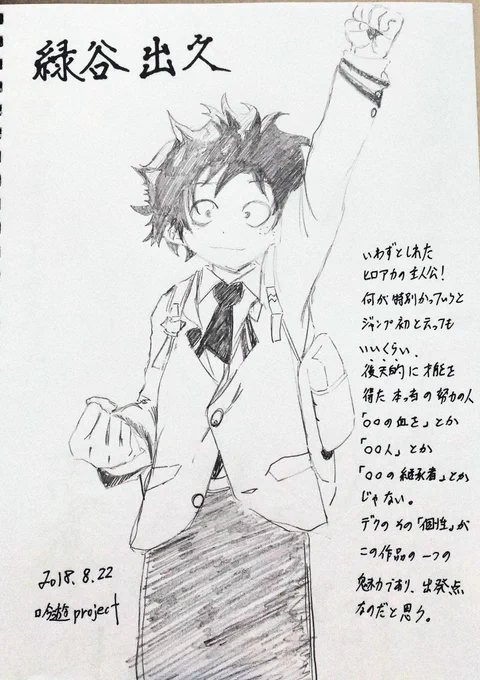 緑谷 出久
いわずとしれた
ヒロアカの主人公!
何が特別かっていうと
ジャンプ初と云っても
いいくらい、
後天的に才能を
得た本当の努力の人
「〇〇の血を」とか
「〇〇人」とか
「〇〇の継承者」とか
じゃない。
デクのその「個性」が
この作品の一つの
魅力であり、出発点
なのだと思う。
2018.8.22
project